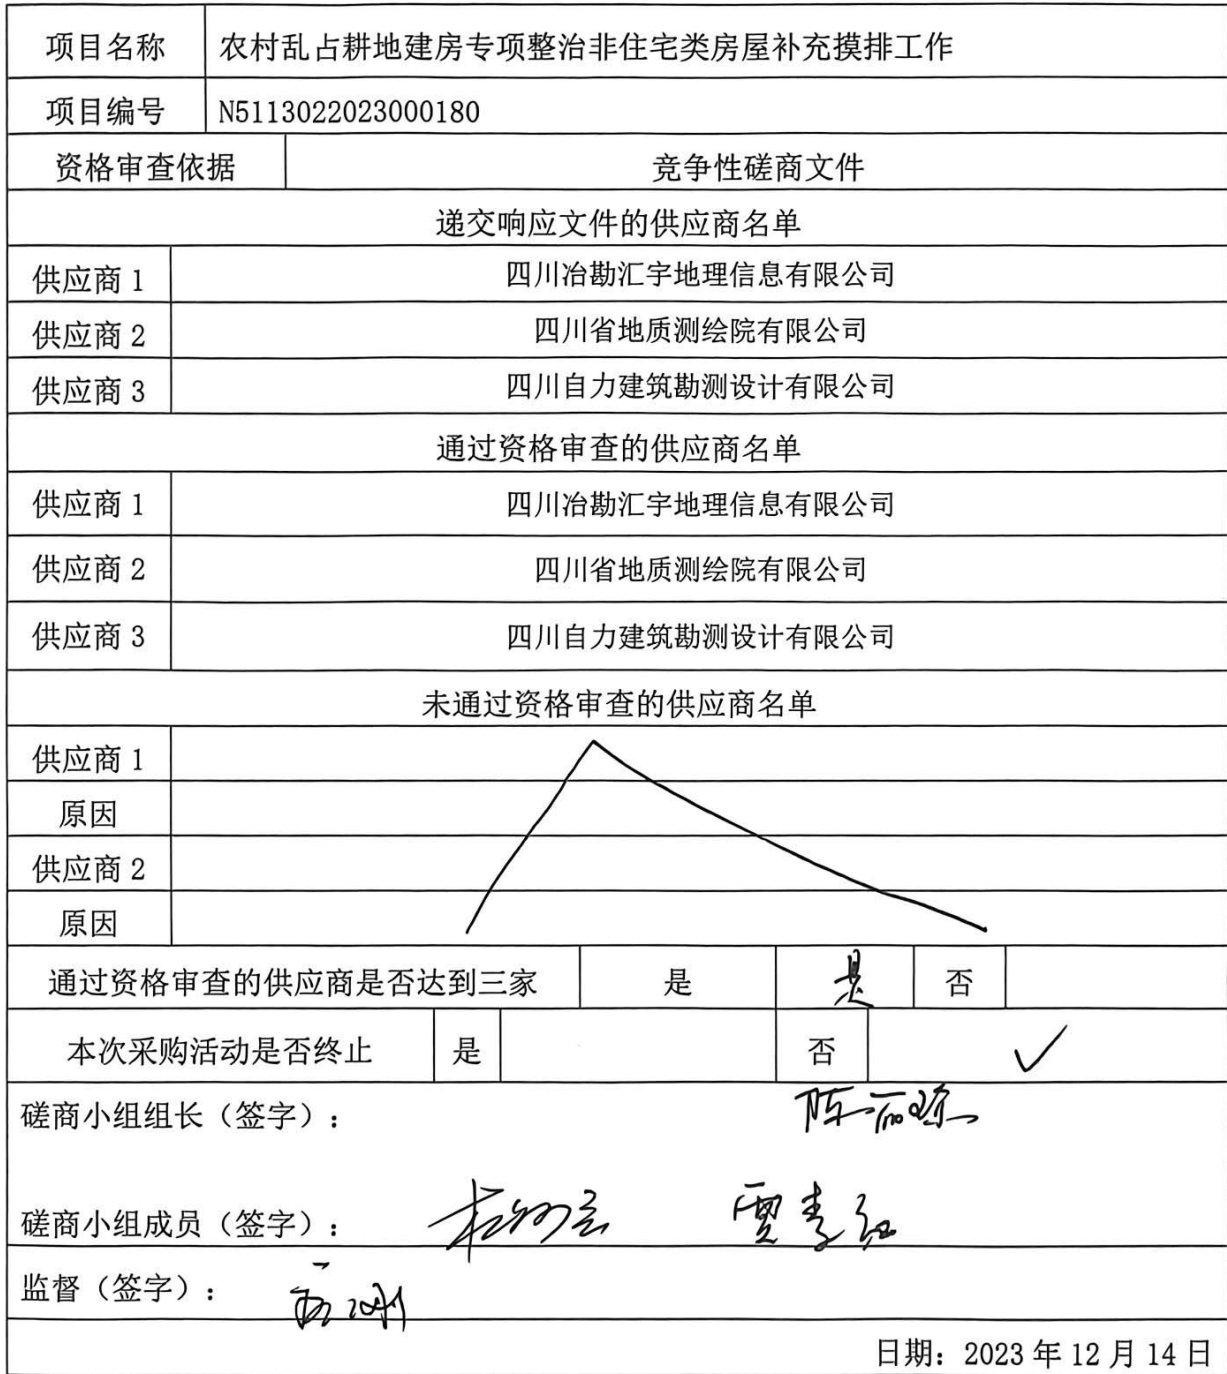 项目名称 农村乱占耕地建房专项整治非住宅类房屋补充摸排工作
项目编号 N5113022023000180
资格审查依据 竞争性磋商文件
递交响应文件的供应商名单
供应商 1 四川冶勘汇宇地理信息有限公司
供应商 2 四川省地质测绘院有限公司
供应商 3 四川自力建筑勘测设计有限公司
通过资格审查的供应商名单
供应商 1 四川冶勘汇宇地理信息有限公司
供应商 2 四川省地质测绘院有限公司
供应商 3 四川自力建筑勘测设计有限公司
未通过资格审查的供应商名单
供应商 1
原因
供应商 2
原因
通过资格审查的供应商是否达到三家 是 是 否
本次采购活动是否终止 是 否 ✓
磋商小组组长（签字）： 陈丽琼
磋商小组成员（签字）： 贾青红
监督（签字）：
日期：2023 年 12 月 14 日